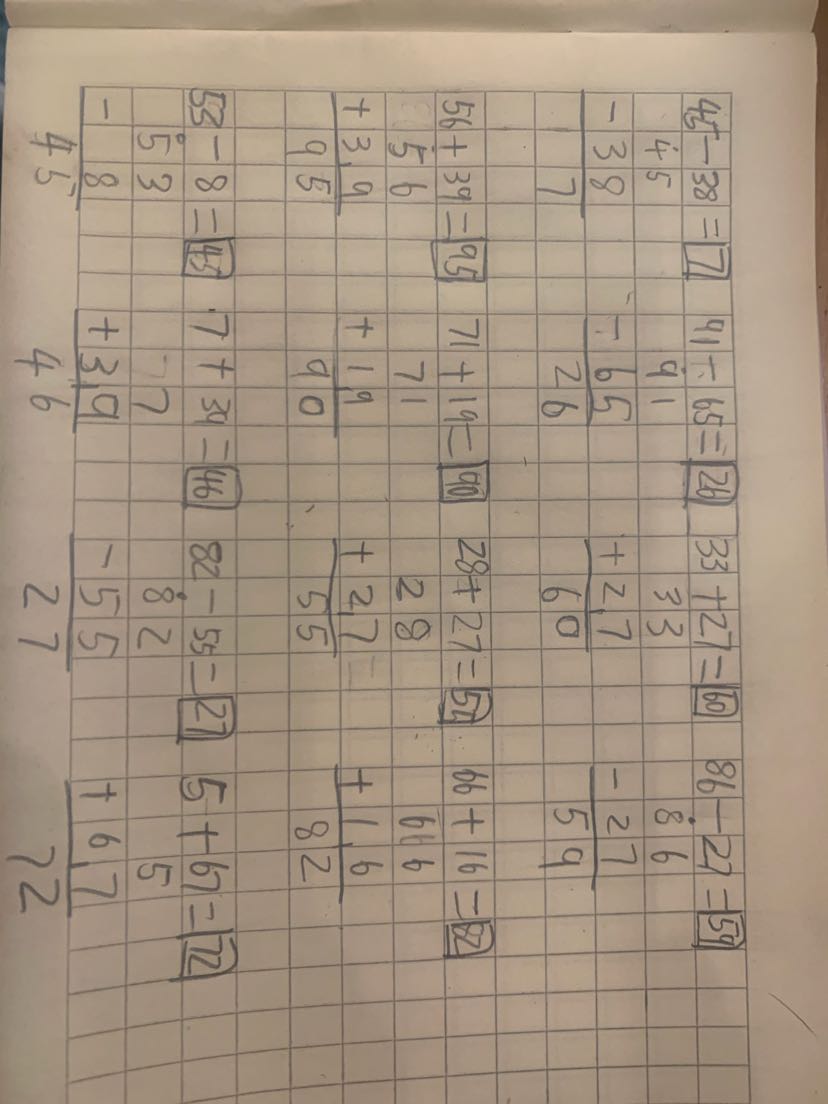 45-38=7 91-65=26 33+27=60 86-27=59
45 91 33 86
-38 -65 +27 -27
7 26 60 59
56+39=95 71+19=90 28+27=55 66+16=82
56 71 28 66
+39 +19 +27 +16
95 90 55 82
53-8=45 7+39=46 82-55=27 5+67=72
53 7 82 5
-8 +39 -55 +67
45 46 27 72